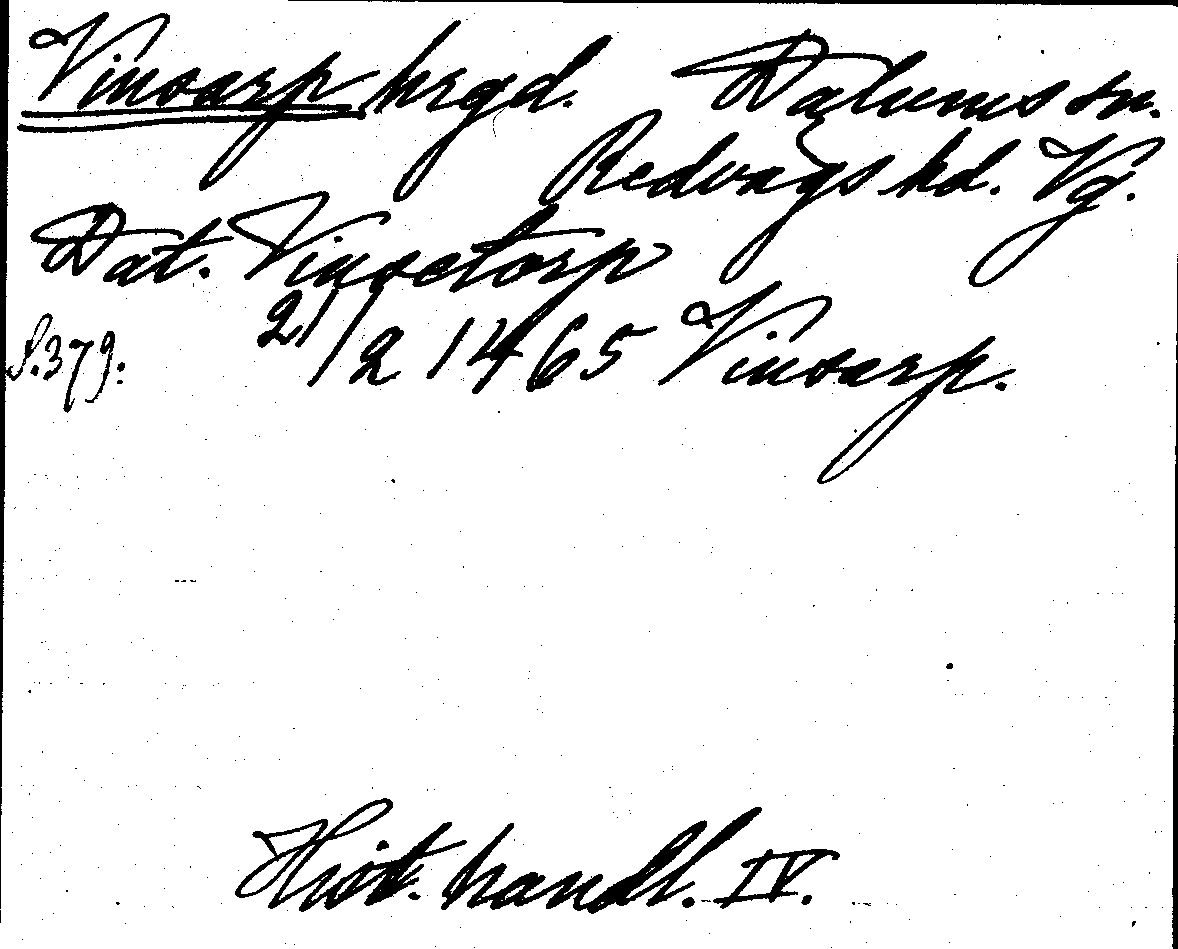 Vinsarp hrgd. Dalums sn.
Redvägs hd. Vg.
Dat. Vinsetorp
S. 379. 21/2 1465 Vinsarp.
Hist. handl. IV.